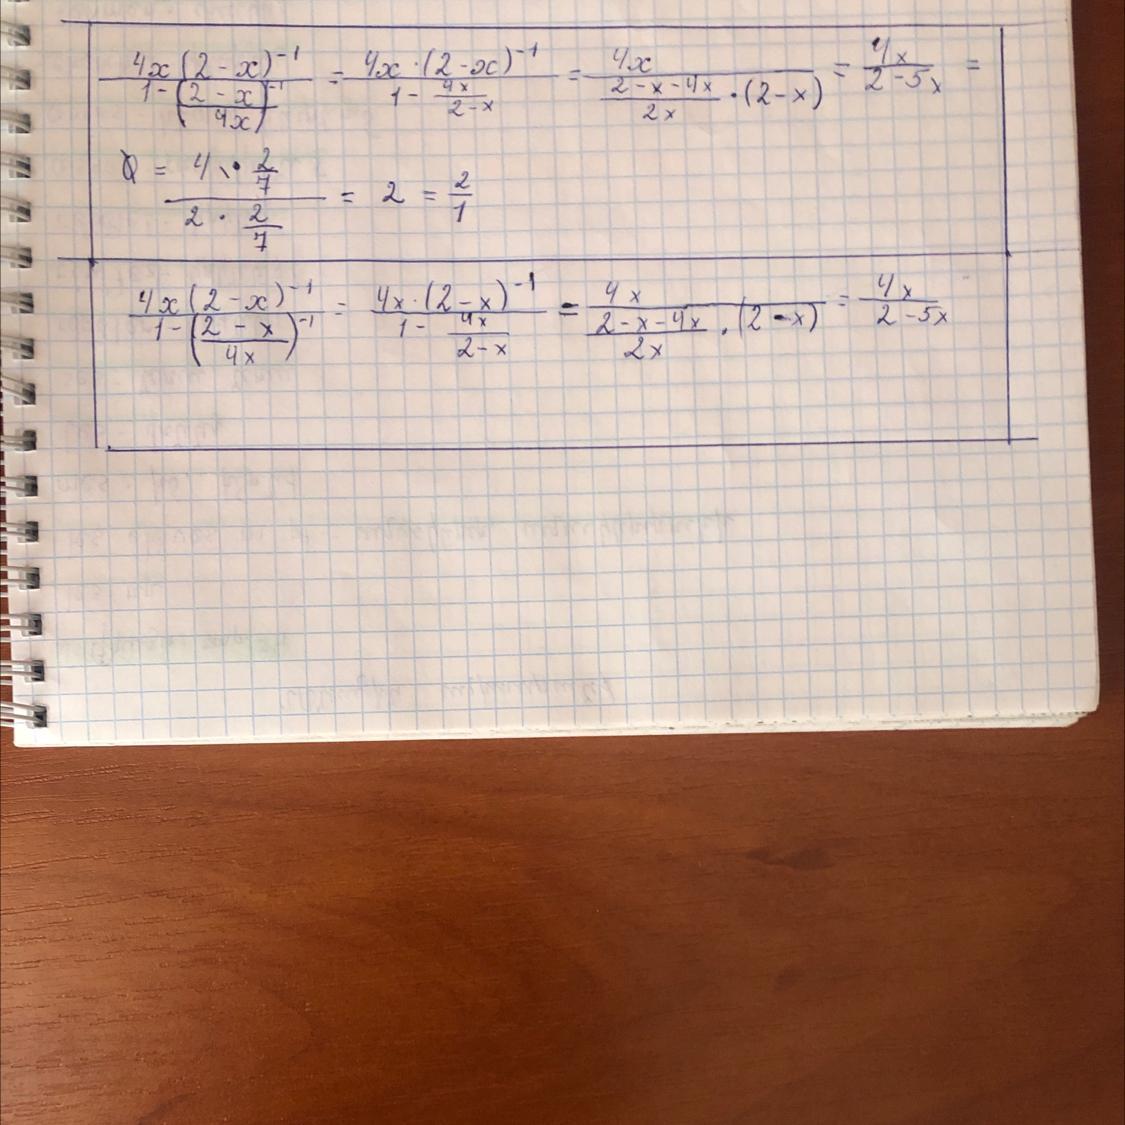 4x(2-x)^{-1} / (1-((2-x)/4x)^{-1}) = 4x·(2-x)^{-1} / (1-4x/(2-x)) = 4x / ((2-x-4x)/2x·(2-x)) = 4x/(2-5x) =
= (4·2/7) / (2·2/7) = 2 = 2/1
4x(2-x)^{-1} / (1-((2-x)/4x)^{-1}) = 4x·(2-x)^{-1} / (1-4x/(2-x)) = 4x / ((2-x-4x)/2x·(2-x)) = 4x/(2-5x)